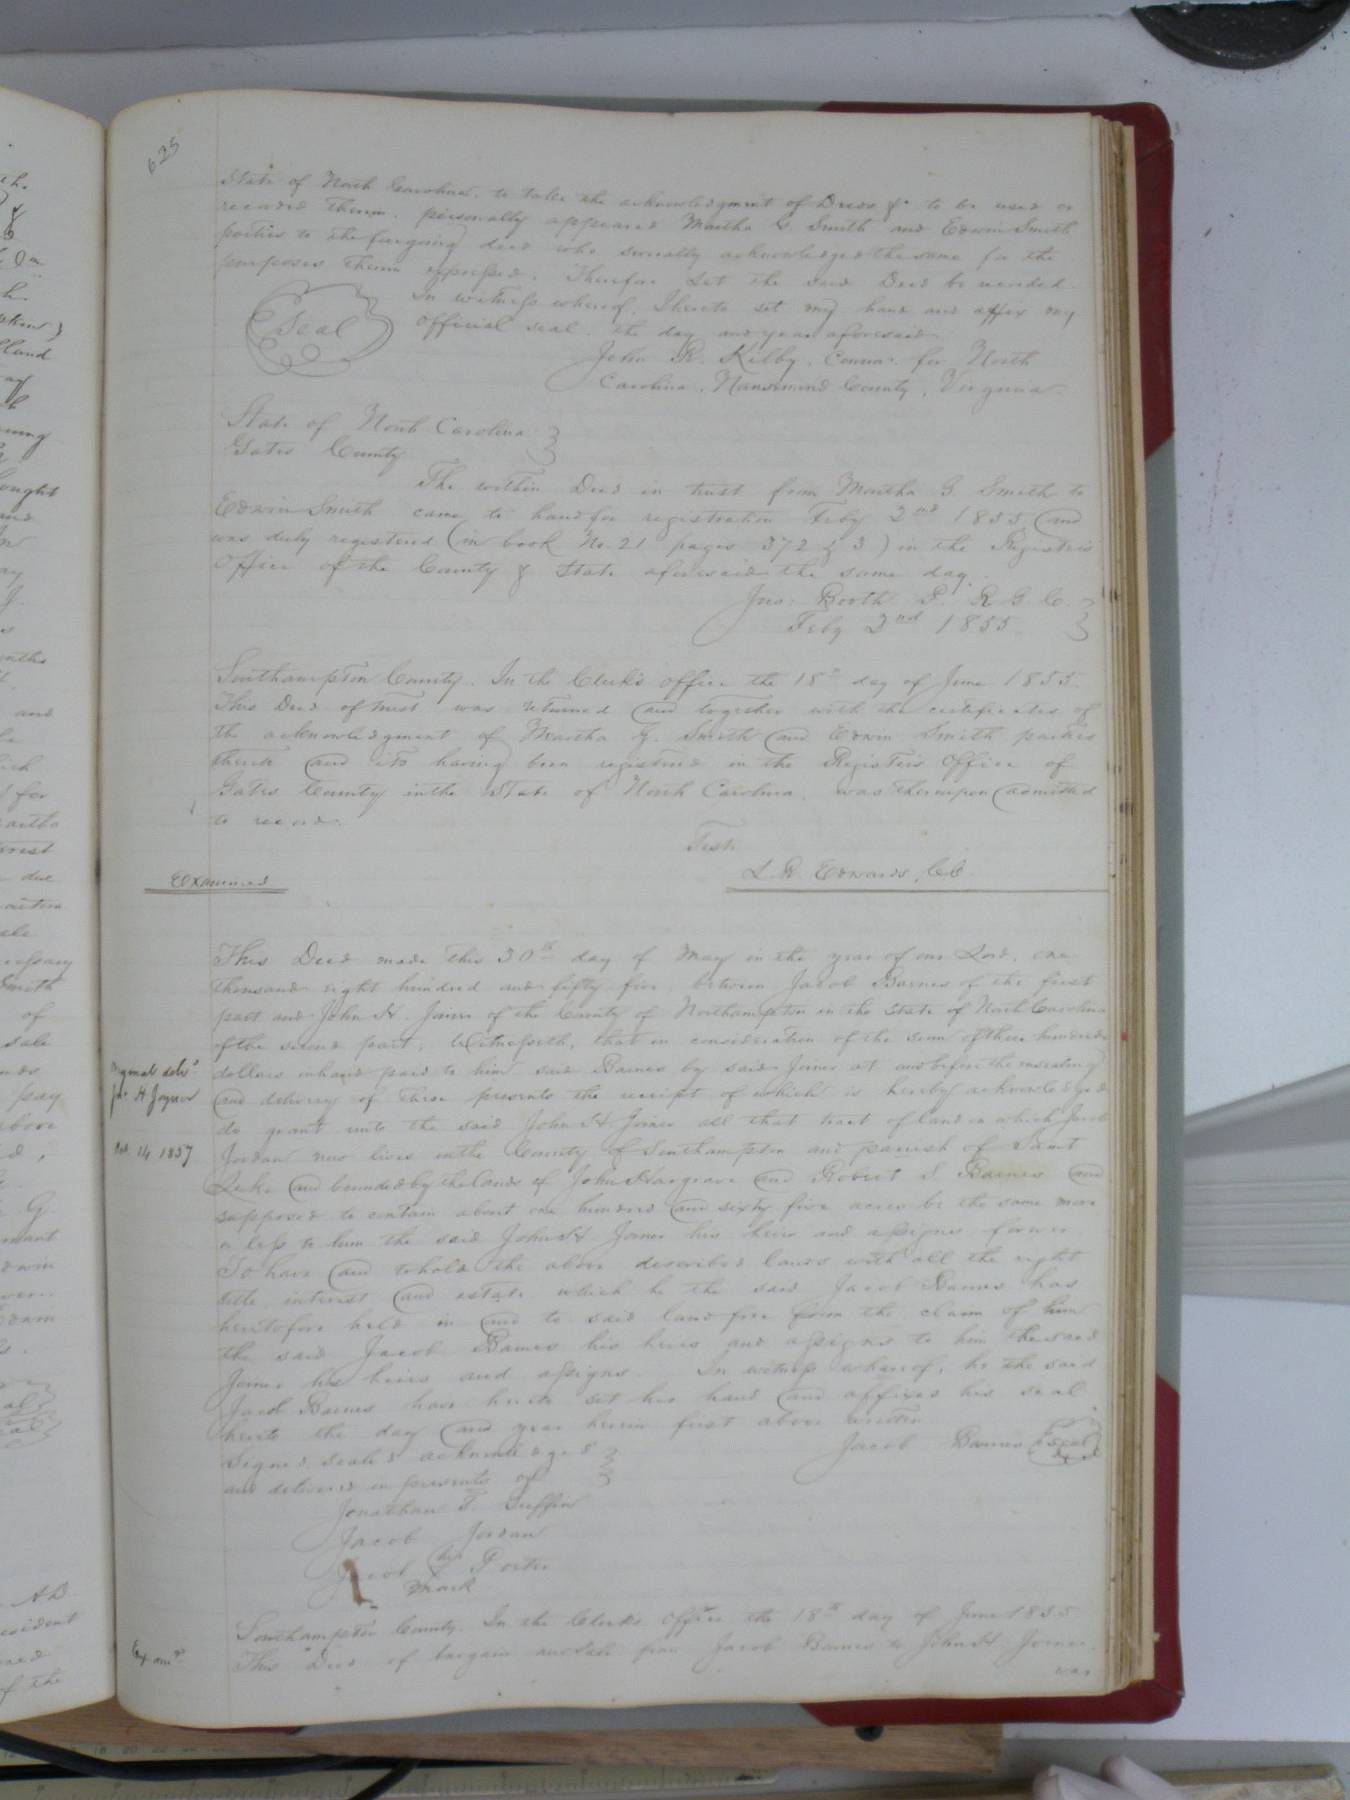 625
State of North Carolina, to take the acknowledgment of Deeds &c to be used or
recorded therein. personally appeared Martha G. Smith and Edwin Smith
parties to the foregoing deed who severally acknowledged the same for the
purposes therein expressed. Therefore let the said Deed be recorded.
In witness whereof, I hereto set my hand and affix my
Seal
official seal. the day and year aforesaid.
John R. Kilby, Comnr. for North
Carolina, Nansemond County, Virginia.
State of North Carolina
Gates County
The within Deed in trust from Martha G. Smith to
Edwin Smith came to hand for registration Feby 2nd 1855 and
was duly registered (in book No. 21 pages 372 & 3) in the Registers
Office of the County & State aforesaid the same day.
Jno: Booth P. R. G. C.
Feby 2nd 1855
Southampton County. In the Clerk's office the 18th day of June 1855.
This Deed of trust was returned and together with the certificates of
the acknowledgment of Martha G. Smith and Edwin Smith parties
thereto and its having been registered in the Registers Office of
Gates County in the State of North Carolina, was thereupon admitted
to record.
Teste
L. R. Edwards, CC
Examined
This Deed made this 30th day of May in the year of our Lord, one
thousand eight hundred and fifty five, between Jacob Barnes of the first
part and John H. Joiner of the County of Northampton in the State of North Carolina
of the second part, Witnesseth, that in consideration of the sum of three hundred
dollars in hand paid to him said Barnes by said Joiner at and before the ensealing
and delivery of these presents the receipt of which is hereby acknowledged
do grant unto the said John H Joiner all that tract of land on which Jacob
Jordan now lives in the County of Southampton and parish of Saint
Luke and bounded by the lands of John Hargrave and Robert S. Barnes and
supposed to contain about one hundred and sixty five acres be the same more
or less to him the said John H Joiner his heirs and assigns forever
To have and to hold the above described lands with all the right
title interest and estate which he the said Jacob Barnes has
heretofore held in and to said land free from the claim of him
the said Jacob Barnes his heirs and assigns to him the said
Joiner his heirs and assigns. In witness whereof, he the said
Jacob Barnes have hereto set his hand and affixes his seal
hereto the day and year herein first above written
Jacob Barnes Seal
Signed sealed acknowledged
and delivered in presents of
Jonathan T. Griffin
Jacob Jordan
his
Jacob X Porter
mark
original delvd
Jno H Joyner
Oct. 14 1857
Southampton County. In the Clerk's Office the 18th day of June 1855
This Deed of bargain and sale from Jacob Barnes to John H. Joiner.
was
Examd